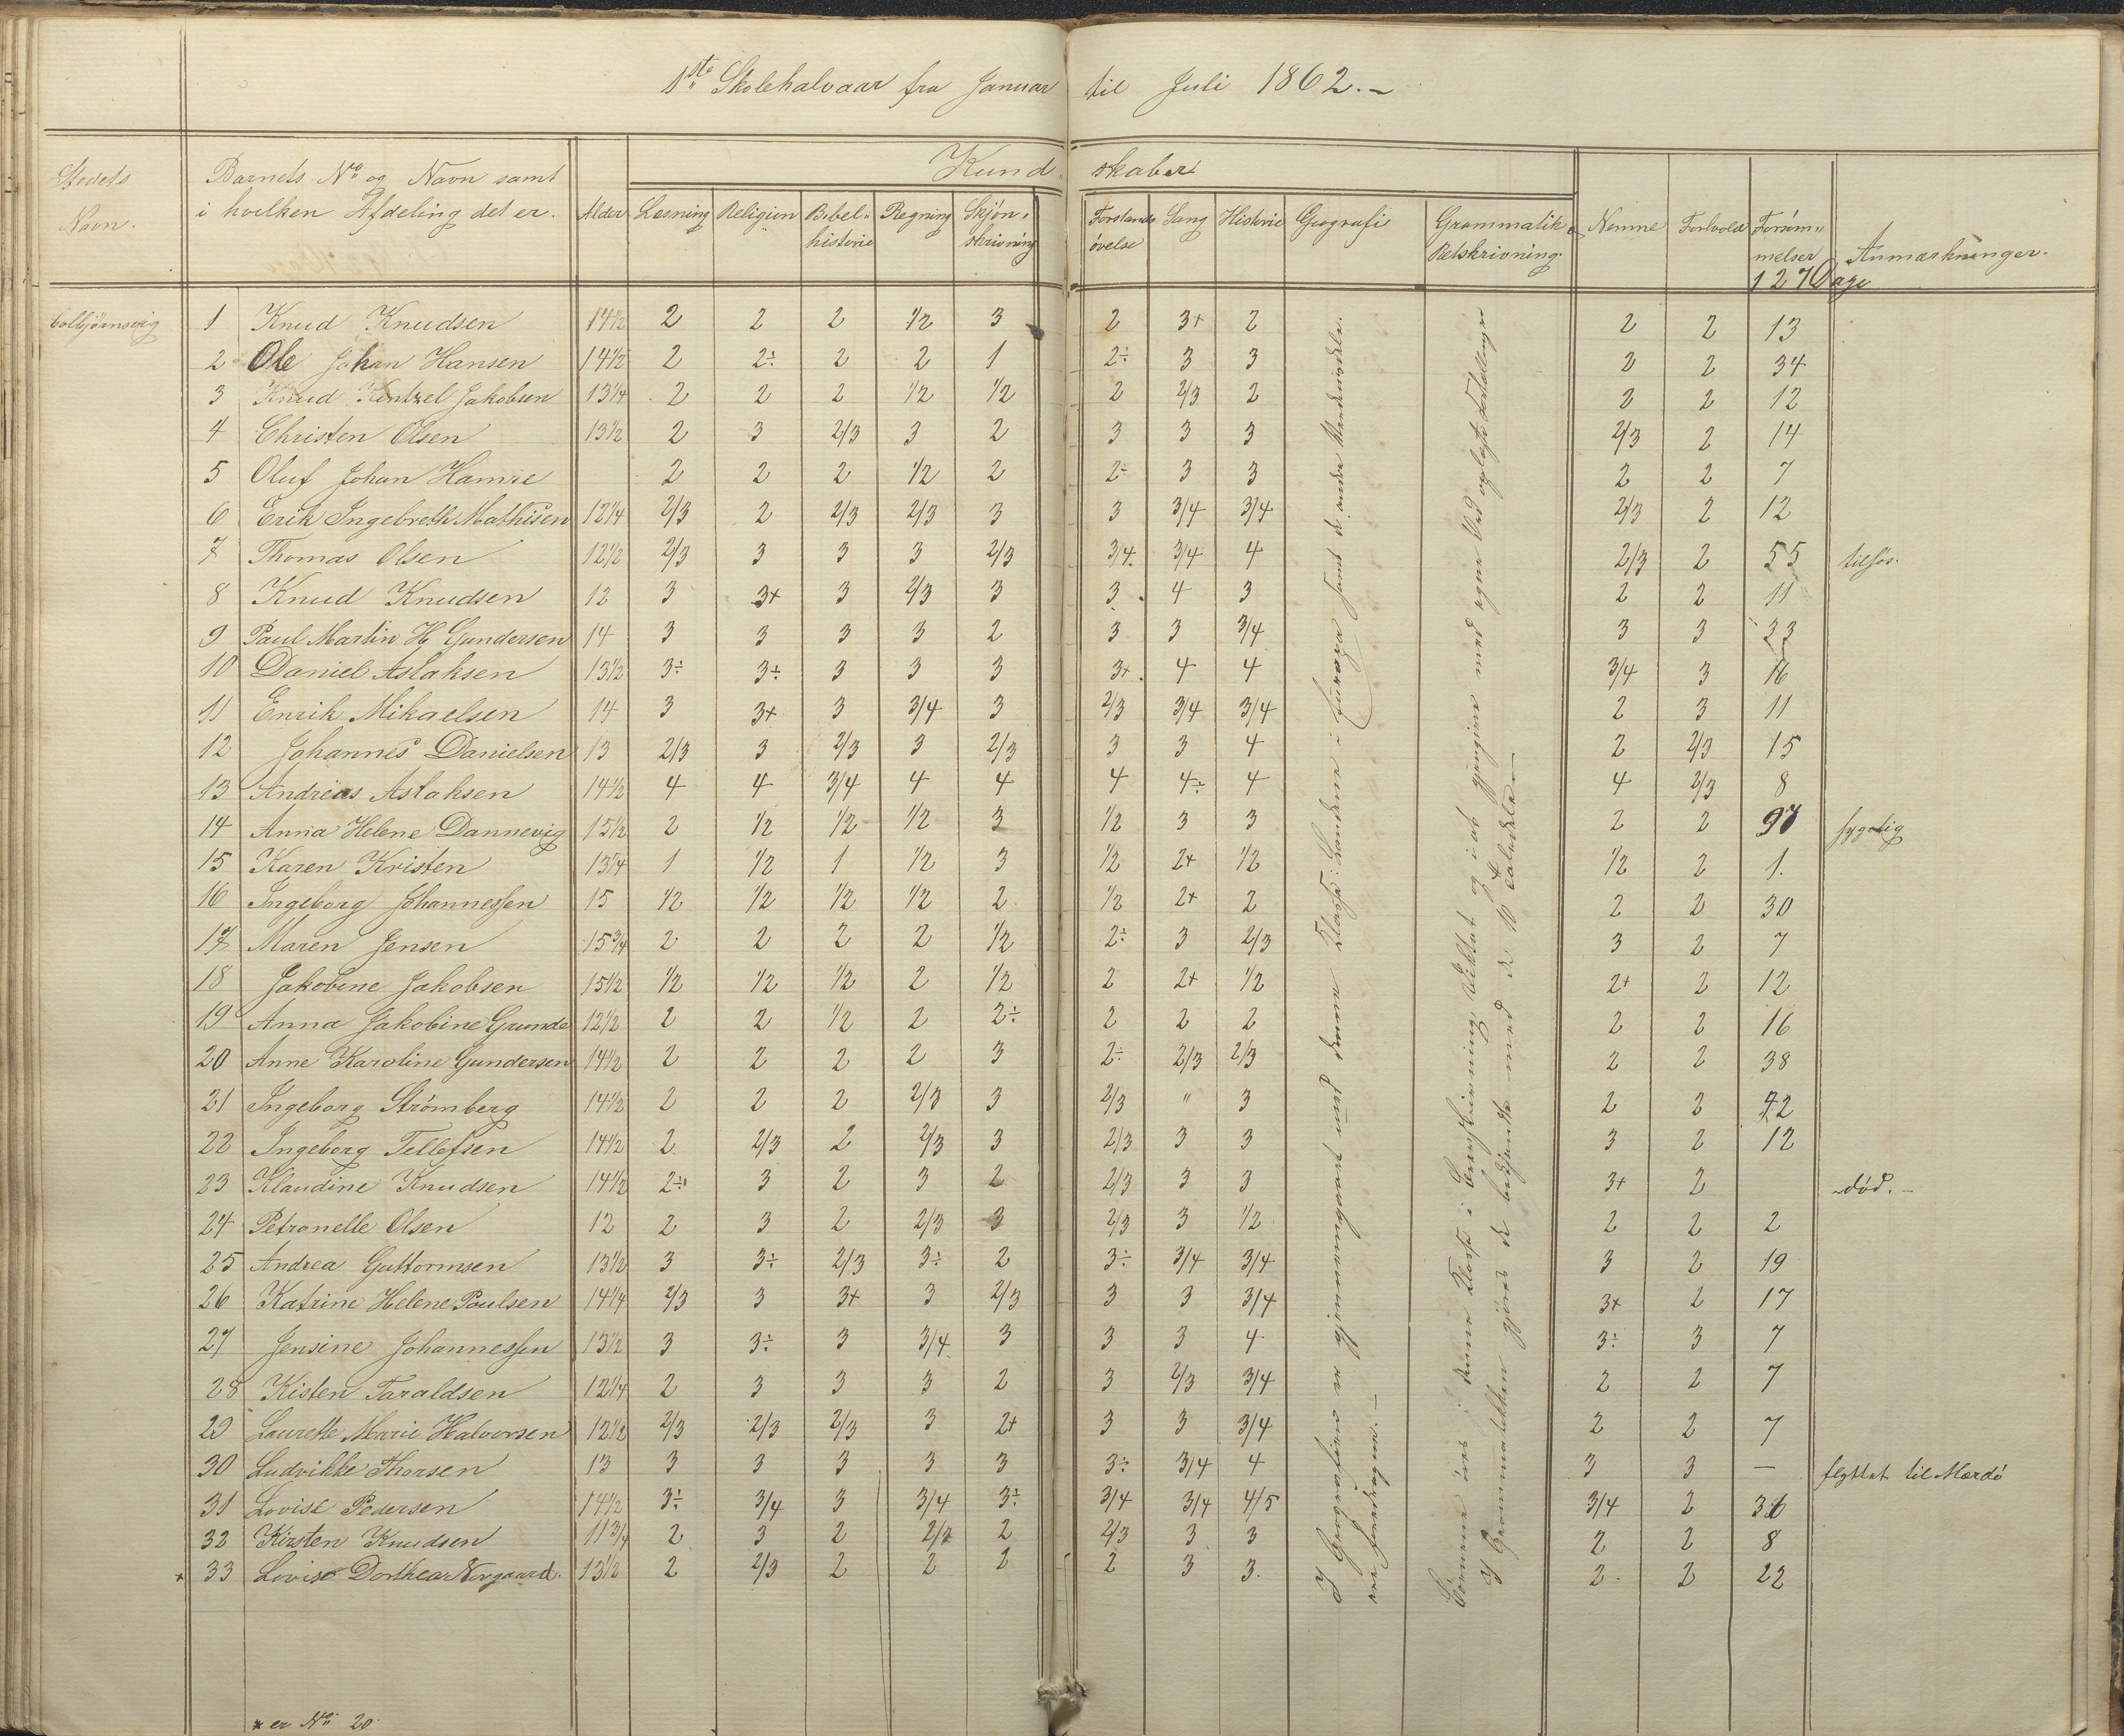 1ste Skolehalvaar fra Januar til Juli 1862.-
Stedets Navn.
Barnets No og Navn samt i hvilken Afdeling det er.
Alder
Kundskaber
Læsning
Religion
Bibelhistorie
Regning
Skjønskrivning
Forstandsøvelse
Sang
Historie
Geografi
Grammatik Retskrivning
Nemme
Forhold
Forsømmelser 127 Dage
Anmærkninger.
1 Knud Knudsen 14½ 2 2 2 1/2 3 2 3+ 2 2 2 13
2 Ole Johan Hansen 14½ 2 2÷ 2 2 1 2÷ 3 3 2 2 34
3 Knud Kintzel Jakobsen 13¼ 2 2 2 1/2 1/2 2 2/3 2 2 2 12
4 Christen Olsen 13½ 2 3 2/3 3 2 3 3 3 2/3 2 14
5 Oluf Johan 2 2 2 1/2 2 2÷ 3 3 2 2 7
6 Erik Ingebreth Mathisen 12¼ 2/3 2 2/3 2/3 3 3 3/4 3/4 2/3 2 12
7 Thomas Olsen 12½ 2/3 3 3 3 2/3 3/4 3/4 4 2/3 2 55 tilsøs.
8 Knud Knudsen 12 3 3+ 3 2/3 3 3 4 3 2 2 11
9 Paul Martin H Gundersen 14 3 3 3 3 2 3 3 3/4 3 3 33
10 Daniel Aslaksen 13½ 3÷ 3÷ 3 3 3 3+ 4 4 3/4 3 16
11 Enrik Mikaelsen 14 3 3+ 3 3/4 3 2/3 3/4 3/4 2 3 11
12 Johannes Danielsen 13 2/3 3 2/3 3 2/3 3 3 4 2 2/3 15
13 Andreas Aslaksen 14½ 4 4 3/4 4 4 4 4÷ 4 4 2/3 8
14 Anna Helene Dannevig 15½ 2 1/2 1/2 1/2 3 1/2 3 3 2 2 97 sygelig
15 Karen Kristen 13¼ 1 1/2 1 1/2 3 1/2 2+ 1/2 1/2 2 1.
16 Ingeborg Johannessen 15 1/2 1/2 1/2 1/2 2 1/2 2+ 2 2 2 30
17 Maren Jensen 15¾ 2 2 2 2 1/2 2÷ 3 2/3 3 2 7
18 Jakobine Jakobsen 15½ 1/2 1/2 1/2 2 1/2 2 2+ 1/2 2+ 2 12
19 Anna Jakobine Grunde 12½ 2 2 1/2 2 2÷ 2 2 2 2 2 16
20 Anne Karoline Gundersen 14½ 2 2 2 2 3 2÷ 2/3 2/3 2 2 38
21 Ingeborg Strömberg 14½ 2 2 2 2/3 3 2/3 " 3 2 2 42
22 Ingeborg Tellefsen 14½ 2 2/3 2 2/3 3 2/3 3 3 3 2 12
23 Klaudine Knudsen 14½ 2÷ 3 2 3 2 2/3 3 3 3+ 2 død.-
24 Petronelle Olsen 12 2 3 2 2/3 3 2/3 3 1/2 2 2 2
25 Andrea Guttormsen 13½ 3 3÷ 2/3 3÷ 2 3÷ 3/4 3/4 3 2 19
26 Katrine Helene Poulsen 14¼ 2/3 3 3+ 3 2/3 3 3 3/4 3+ 2 17
27 Jensine Johannessen 13½ 3 3÷ 3 3/4 3 3 3 4 3÷ 3 7
28 Kisten Taraldsen 12¼ 2 3 3 3 2 3 2/3 3/4 2 2 7
29 Laurette Marie Halvorsen 12½ 2/3 2/3 2/3 3 2+ 3 3 3/4 2 2 7
30 Ludvikke Thorsen 13 3 3 3 3 3 3÷ 3/4 4 3 3 — flyttet til Mærdö
31 Lovise Pedersen 14½ 3÷ 3/4 3 3/4 3÷ 3/4 3/4 4/5 3/4 2 36
32 Kirsten Knudsen 11¾ 2 3 2 2/3 2 2/3 3 3 2 2 8
* 33 Lovise Dorthea Norgaard. 13½ 2 2/3 2 2 2 2 3 3. 2 2 22
I Geografien er gjennemgaaet med denne Klasse: Landene i Europa samt de andre Verdensdele
* er No 20